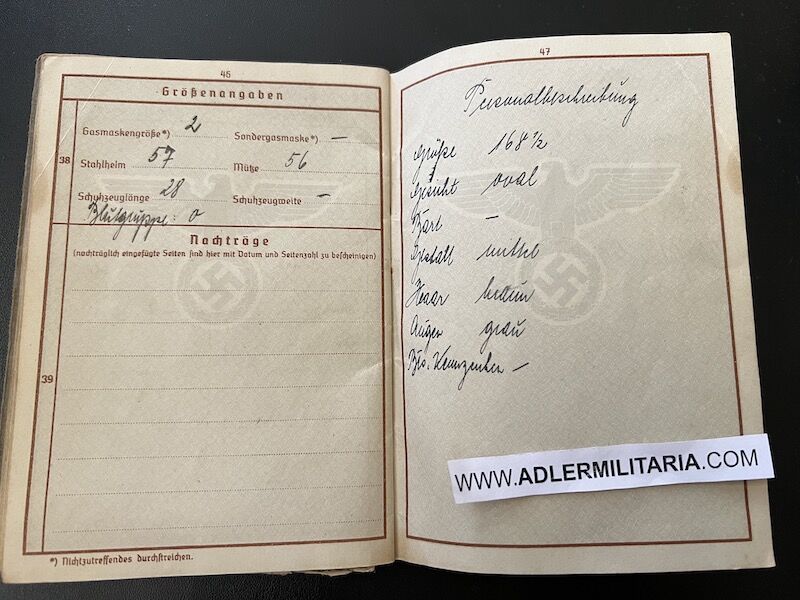 46
Größenangaben
38
Gasmaskengröße*) 2 Sondergasmaske*) —
Stahlhelm 57 Mütze 56
Schuhzeuglänge 28 Schuhzeugweite —
Blutgruppe: 0
Nachträge
(nachträglich eingefügte Seiten sind hier mit Datum und Seitenzahl zu bescheinigen)
39
*) Nichtzutreffendes durchstreichen.
47
Personalbeschreibung
Größe 168 ½
Gesicht oval
Bart —
Gestalt mittel
Haar braun
Augen grau
Bes. Kennzeichen —
WWW.ADLERMILITARIA.COM